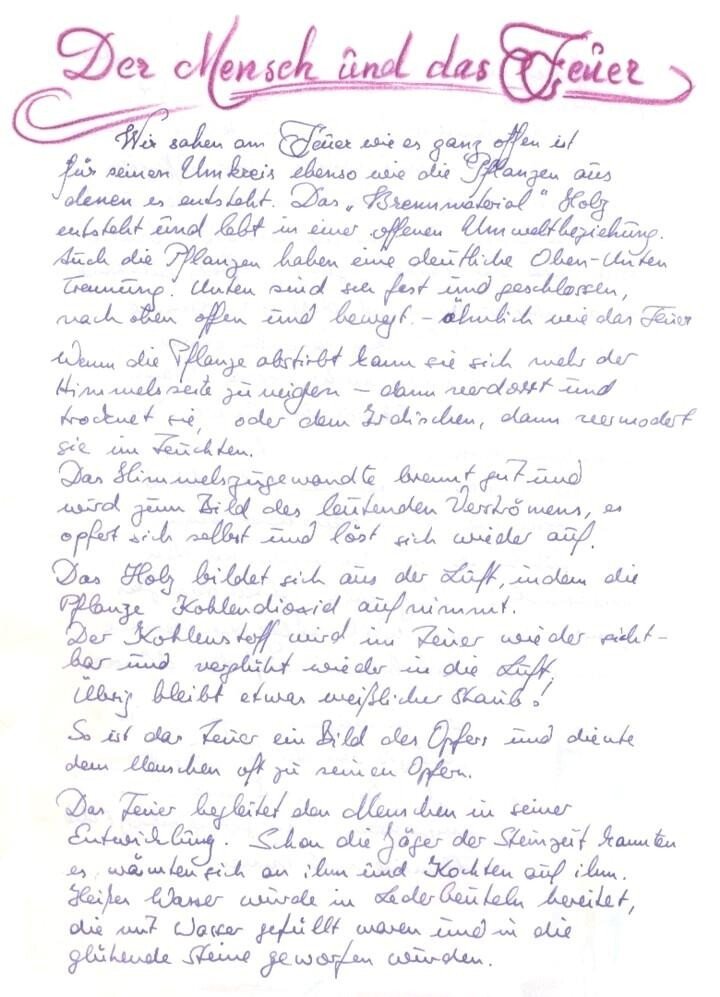 Der Mensch und das Feuer
Wir sahen am Feuer wie es ganz offen ist
für seinen Umkreis ebenso wie die Pflanzen aus
denen es entsteht. Das „Brennmaterial" Holz
entsteht und lebt in einer offenen Umweltbeziehung.
Auch die Pflanzen haben eine deutliche Oben-Unten
Trennung. Unten sind sie fest und geschlossen,
nach oben offen und bewegt. - ähnlich wie das Feuer
Wenn die Pflanze abstirbt kann sie sich mehr der
Himmelsseite zuneigen – dann verdorrt und
trocknet sie, oder dem Irdischen, dann vermodert
sie im Feuchten.
Das Himmelszugewandte brennt gut und
wird zum Bild des Verströmens, es
opfert sich selbst und löst sich wieder auf.
Das Holz bildet sich aus der Luft, indem die
Pflanze Kohlendioxid aufnimmt.
Der Kohlenstoff wird im Feuer wieder sicht-
bar und verglüht wieder in die Luft.
Übrig bleibt etwas weißlicher Staub!
So ist das Feuer ein Bild des Opfers und diente
dem Menschen oft zu seinen Opfern.
Das Feuer begleitet den Menschen in seiner
Entwicklung. Schon die Jäger der Steinzeit kannten
es, wärmten sich an ihm und Kochten auf ihm.
Heißes Wasser wurde in Lederbeuteln bereitet,
die mit Wasser gefüllt waren und in die
glühende Steine geworfen wurden.